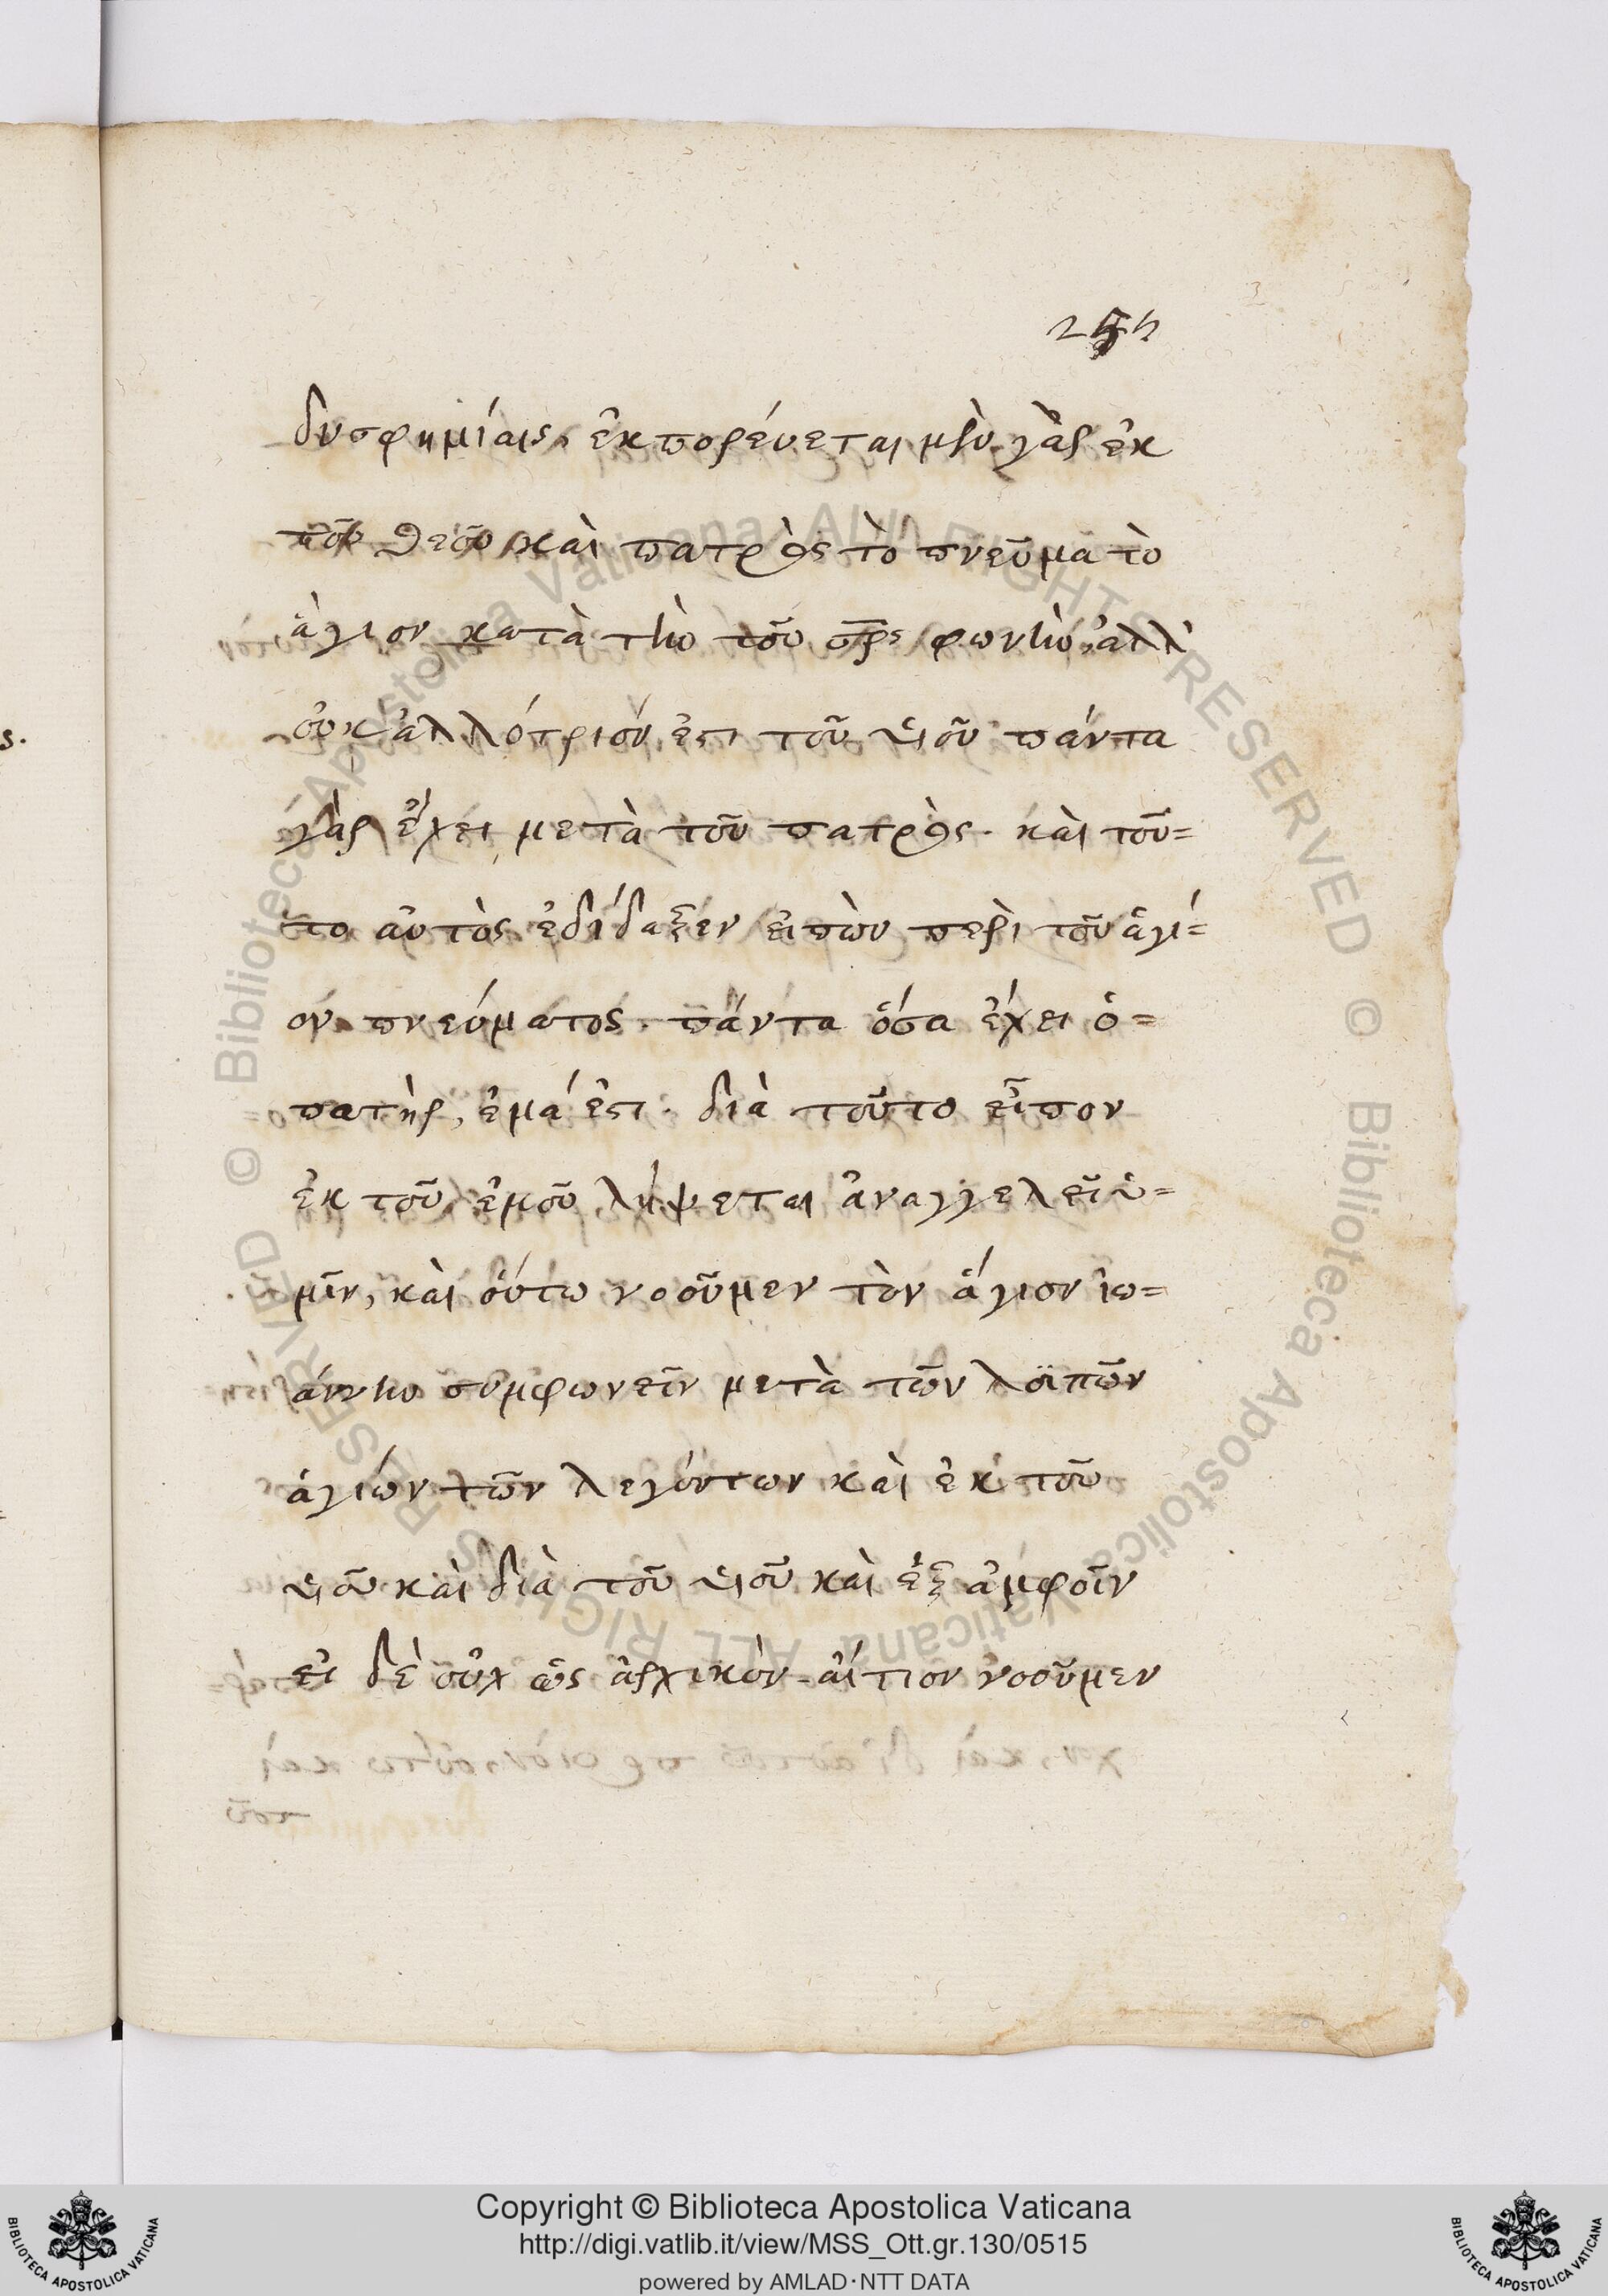 δυσφημίαις. ἐκπορεύεται μὲν γὰρ ἐκ
τοῦ θεοῦ καὶ πατρὸς τὸ πνεῦμα τὸ
ἅγιον κατὰ τὴν τοῦ σρς φωνὴν, ἀλλ'
οὐκ ἀλλότριόν ἐστι τοῦ υἱοῦ πάντα
γὰρ ἔχει μετὰ τοῦ πατρὸς. καὶ τοῦ=
το αὐτὸς ἐδίδαξεν εἰπὼν περὶ τοῦ ἁγί=
ου πνεύματος. πάντα ὅσα ἔχει ὁ=
πατὴρ, ἐμά ἐστι. διὰ τοῦτο εἶπον
ἐκ τοῦ ἐμοῦ λήψεται ἀναγγελεῖ ὑ=
μῖν, καὶ οὕτω νοοῦμεν τὸν ἅγιον ἰω=
άννην συμφωνεῖν μετὰ τῶν λοϊπῶν
ἁγίων τῶν λεγόντων καὶ ἐκ τοῦ
υἱοῦ καὶ διὰ τοῦ υἱοῦ καὶ ἐξ ἀμφοῖν
εἰ δὲ οὐχ ὡς ἀρχικὸν αἴτιον νοοῦμεν
© Biblioteca Apostolica Vaticana ALL RIGHTS RESERVED
© Biblioteca Apostolica Vaticana ALL RIGHTS RESERVED
Copyright © Biblioteca Apostolica Vaticana
http://digi.vatlib.it/view/MSS_Ott.gr.130/0515
powered by AMLAD・NTT DATA
BIBLIOTECA APOSTOLICA VATICANA
BIBLIOTECA APOSTOLICA VATICANA